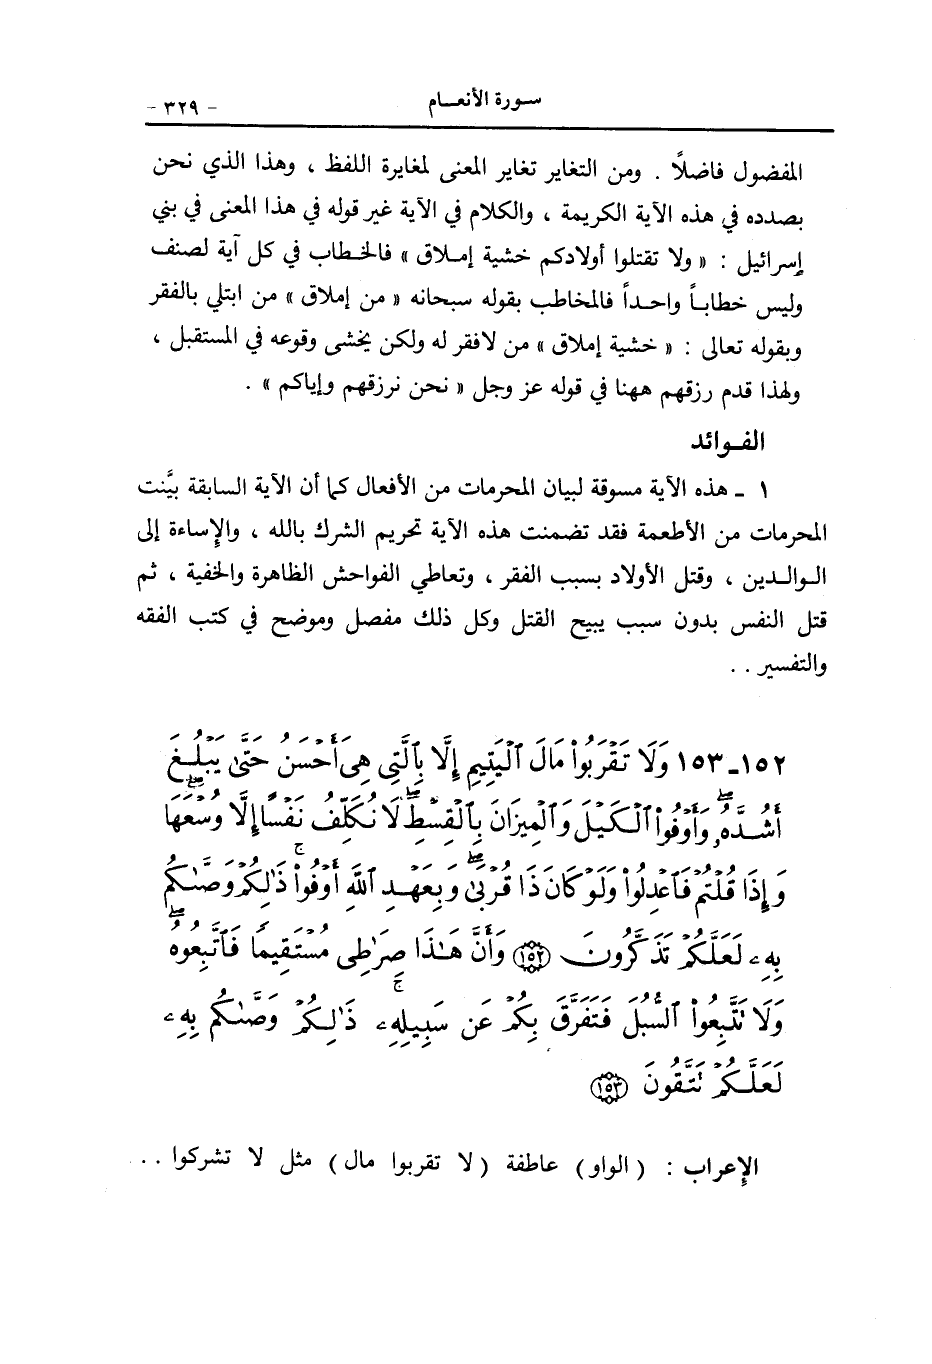 سورة الأنعام - ٣٢٩ -
المفضول فاضلاً . ومن التغاير تغاير المعنى لمغايرة اللفظ ، وهذا الذي نحن
بصدده في هذه الآية الكريمة ، والكلام في الآية غير قوله في هذا المعنى في بني
إسرائيل : « ولا تقتلوا أولادكم خشية إملاق » فالخطاب في كل آية لصنف
وليس خطاباً واحداً فالمخاطب بقوله سبحانه « من إملاق » من ابتلي بالفقر
وبقوله تعالى : « خشية إملاق » من لافقر له ولكن يخشى وقوعه في المستقبل ،
ولهذا قدم رزقهم ههنا في قوله عز وجل « نحن نرزقهم وإياكم » .
الفوائد
١ - هذه الآية مسوقة لبيان المحرمات من الأفعال كما أن الآية السابقة بيَّنت
المحرمات من الأطعمة فقد تضمنت هذه الآية تحريم الشرك بالله ، والإساءة إلى
الوالدين ، وقتل الأولاد بسبب الفقر ، وتعاطي الفواحش الظاهرة والخفية ، ثم
قتل النفس بدون سبب يبيح القتل وكل ذلك مفصل وموضح في كتب الفقه
والتفسير . .
١٥٢-١٥٣ وَلَا تَقْرَبُوا۟ مَالَ ٱلْيَتِيمِ إِلَّا بِٱلَّتِى هِىَ أَحْسَنُ حَتَّىٰ يَبْلُغَ
أَشُدَّهُۥۖ وَأَوْفُوا۟ ٱلْكَيْلَ وَٱلْمِيزَانَ بِٱلْقِسْطِۖ لَا نُكَلِّفُ نَفْسًا إِلَّا وُسْعَهَاۖ
وَإِذَا قُلْتُمْ فَٱعْدِلُوا۟ وَلَوْ كَانَ ذَا قُرْبَىٰۖ وَبِعَهْدِ ٱللَّهِ أَوْفُوا۟ۚ ذَٰلِكُمْ وَصَّىٰكُم
بِهِۦ لَعَلَّكُمْ تَذَكَّرُونَ ﴿١٥٢﴾ وَأَنَّ هَٰذَا صِرَٰطِى مُسْتَقِيمًا فَٱتَّبِعُوهُۖ
وَلَا تَتَّبِعُوا۟ ٱلسُّبُلَ فَتَفَرَّقَ بِكُمْ عَن سَبِيلِهِۦۚ ذَٰلِكُمْ وَصَّىٰكُم بِهِۦ
لَعَلَّكُمْ تَتَّقُونَ ﴿١٥٣﴾
الإعراب : ( الواو) عاطفة (لا تقربوا مال) مثل لا تشركوا . .